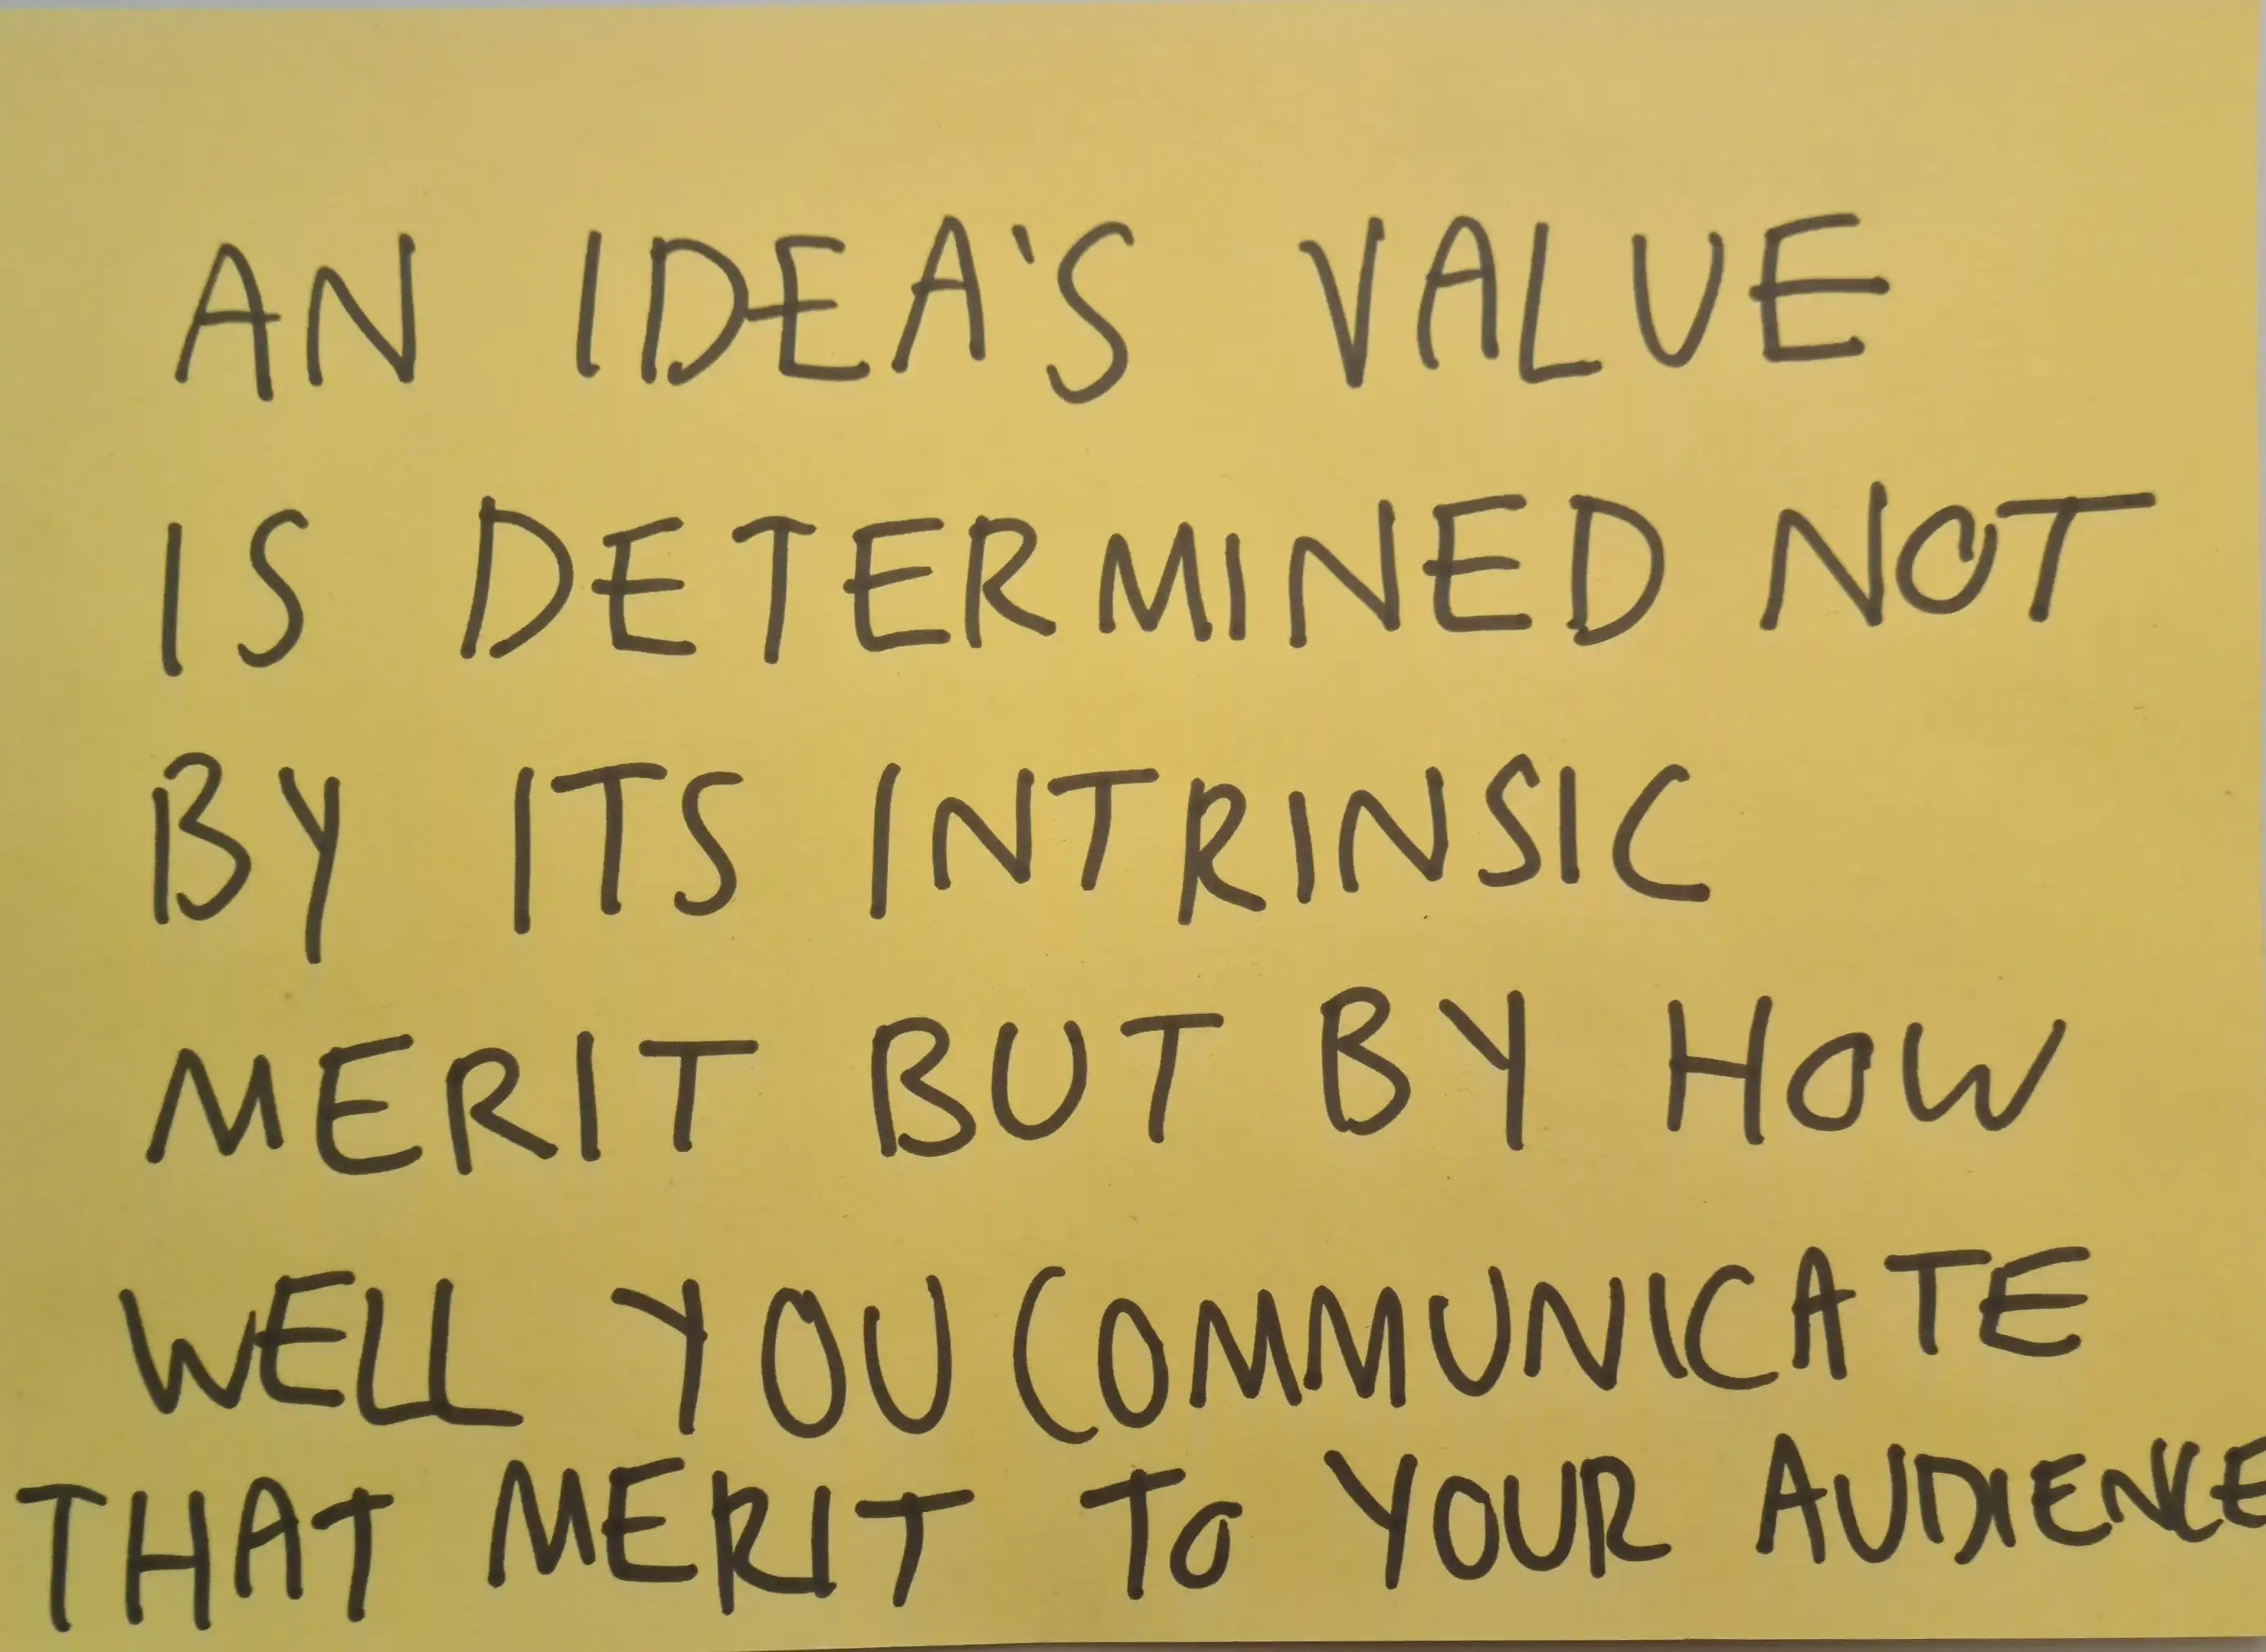 AN IDEA'S VALUE
IS DETERMINED NOT
BY ITS INTRINSIC
MERIT BUT BY HOW
WELL YOU COMMUNICATE
THAT MERIT TO YOUR AUDIENCE